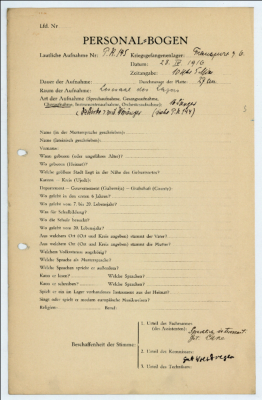 Lfd. Nr.
PERSONAL-BOGEN
Lautliche Aufnahme Nr.: P.K. 145 Kriegsgefangenenlager:
Datum: 28. IV. 1916
Zeitangabe:
Dauer der Aufnahme: Durchmesser der Platte: 27 cm
Raum der Aufnahme: des Lagers
Art der Aufnahme (Sprechaufnahme, Gesangsaufnahme,
Choraufnahme, Instrumentenaufnahme, Orchesteraufnahme):
Name (in der Muttersprache geschrieben):
Name (lateinisch geschrieben):
Vorname:
Wann geboren (oder ungefähres Alter)?
Wo geboren (Heimat)?
Welche größere Stadt liegt in der Nähe des Geburtsortes?
Kanton — Kreis (Ujedu):
Departement — Gouvernement (Gubernija) — Grafschaft (County):
Wo gelebt in den ersten 6 Jahren?
Wo gelebt vom 7. bis 20. Lebensjahr?
Was für Schulbildung?
Wo die Schule besucht?
Wo gelebt vom 20. Lebensjahr?
Aus welchem Ort (Ort und Kreis angeben) stammt der Vater?
Aus welchem Ort (Ort und Kreis angeben) stammt die Mutter?
Welchem Volksstamm angehörig?
Welche Sprache als Muttersprache?
Welche Sprachen spricht er außerdem?
Kann er lesen? Welche Sprachen?
Kann er schreiben? Welche Sprachen?
Spielt er ein im Lager vorhandenes Instrument aus der Heimat?
Singt oder spielt er modern europäische Musikweisen?
Religion: Beruf:
1. Urteil des Fachmannes
(des Assistenten):
Beschaffenheit der Stimme:
2. Urteil des Kommissars:
3. Urteil des Technikers: